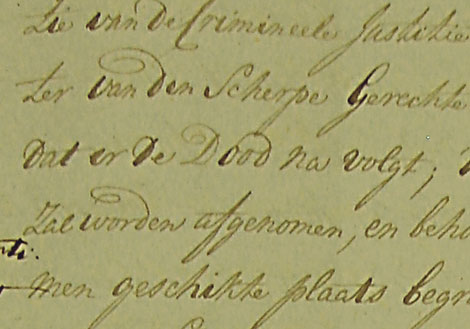 tie van de Crimineele Justitie
ter van den Scherpe Gerechte
dat er de Dood na volgt;
zal worden afgenomen, en beho
men geschikte plaats begr